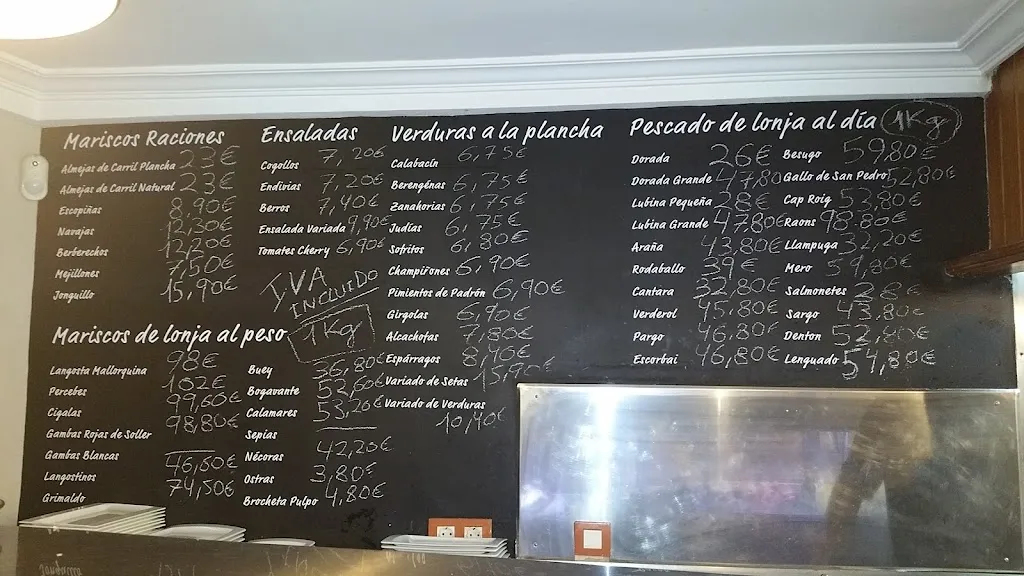 Mariscos Raciones
Almejas de Carril Plancha 23€
Almejas de Carril Natural 23€
Escopiñas 8,90€
Navajas 12,30€
Berberechos 12,20€
Mejillones 7,50€
Jonquillo 15,90€
Ensaladas
Cogollos 7,20€
Endivias 7,20€
Berros 7,40€
Ensalada Variada 9,90€
Tomates Cherry 6,90€
IVA
INCLUIDO
Verduras a la plancha
Calabacín 6,75€
Berengénas 6,75€
Zanahorias 6,75€
Judías 6,75€
Sofritos 6,80€
Champiñones 6,90€
Pimientos de Padrón 6,90€
Girgolas 6,90€
Alcachofas 7,80€
Espárragos 8,40€
Variado de Setas 15,90€
Variado de Verduras
10,40€
Pescado de lonja al día 1Kg
Dorada 26€
Dorada Grande 47,80
Lubina Pequeña 28€
Lubina Grande 47,80€
Araña 43,80€
Rodaballo 39€
Cantara 32,80€
Verderol 45,80€
Pargo 46,80€
Escorbai 46,80€
Besugo 59,80€
Gallo de San Pedro 52,80€
Cap Roig 53,80€
Raons 98,80€
Llampuga 32,20€
Mero 59,80€
Salmonetes 28€
Sargo 43,80€
Denton 52,80€
Lenguado 54,80€
Mariscos de lonja al peso 1Kg
Langosta Mallorquina 98€
Percebes 102€
Cigalas 99,60€
Gambas Rojas de Soller 98,80€
Gambas Blancas
Langostinos 46,60€
Grimaldo 74,50€
Buey 36,80€
Bogavante 52,60€
Calamares 53,20€
Sepias
Nécoras 42,20€
Ostras 3,80€
Brocheta Pulpo 4,80€